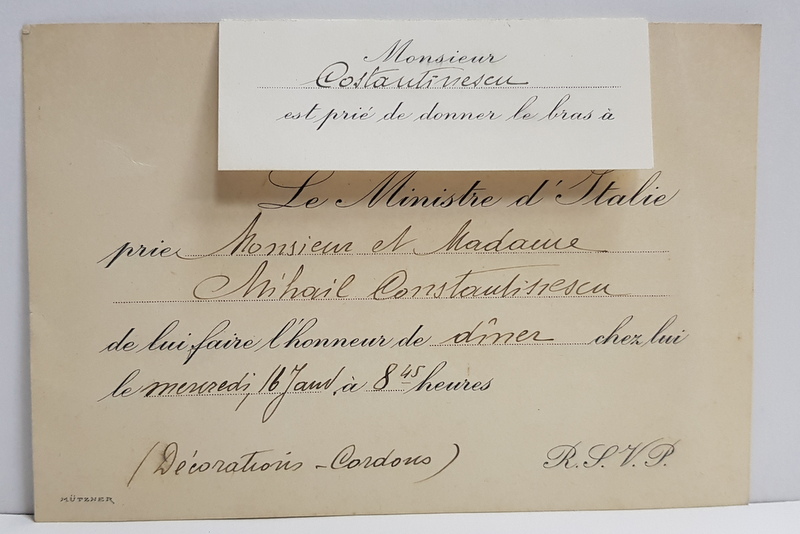 Monsieur
Costantinescu
est prié de donner le bras à
Le Ministre d'Italie
prie Monsieur et Madame
Mihail Constantinescu
de lui faire l'honneur de dîner chez lui
le mercredi, 16 Janv. à 8 45 heures
(Décorations - Cordons)
R.S.V.P.
KÜTZNER